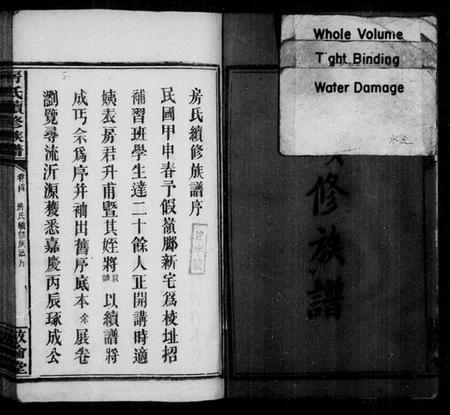 Whole Volume
Tight Binding
Water Damage
水迹
修族譜
房氏續修族譜序
民國甲申春予假嶺鄉新宅爲校址招
補習班學生達二十餘人正開講時適
姨表房君升甫暨其姪將以續譜將
成丐余爲序并袖出舊序底本余展卷
瀏覽尋流沂源獲悉嘉慶丙辰琢成公
房氏續修族譜
卷首
房氏續修族譜序
敦倫堂